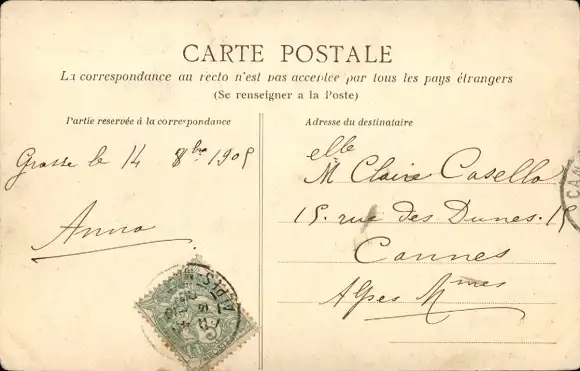 CARTE POSTALE
La correspondance au recto n'est pas acceptée par tous les pays étrangers
(Se renseigner a la Poste)
Partie reservée à la correspondance
Grasse le 14 8bre 1905
Anna
Adresse du destinataire
Melle Claire Casello
15. rue des Dunes. 15
Cannes
Alpes Mmes
ALPES-M
CAN